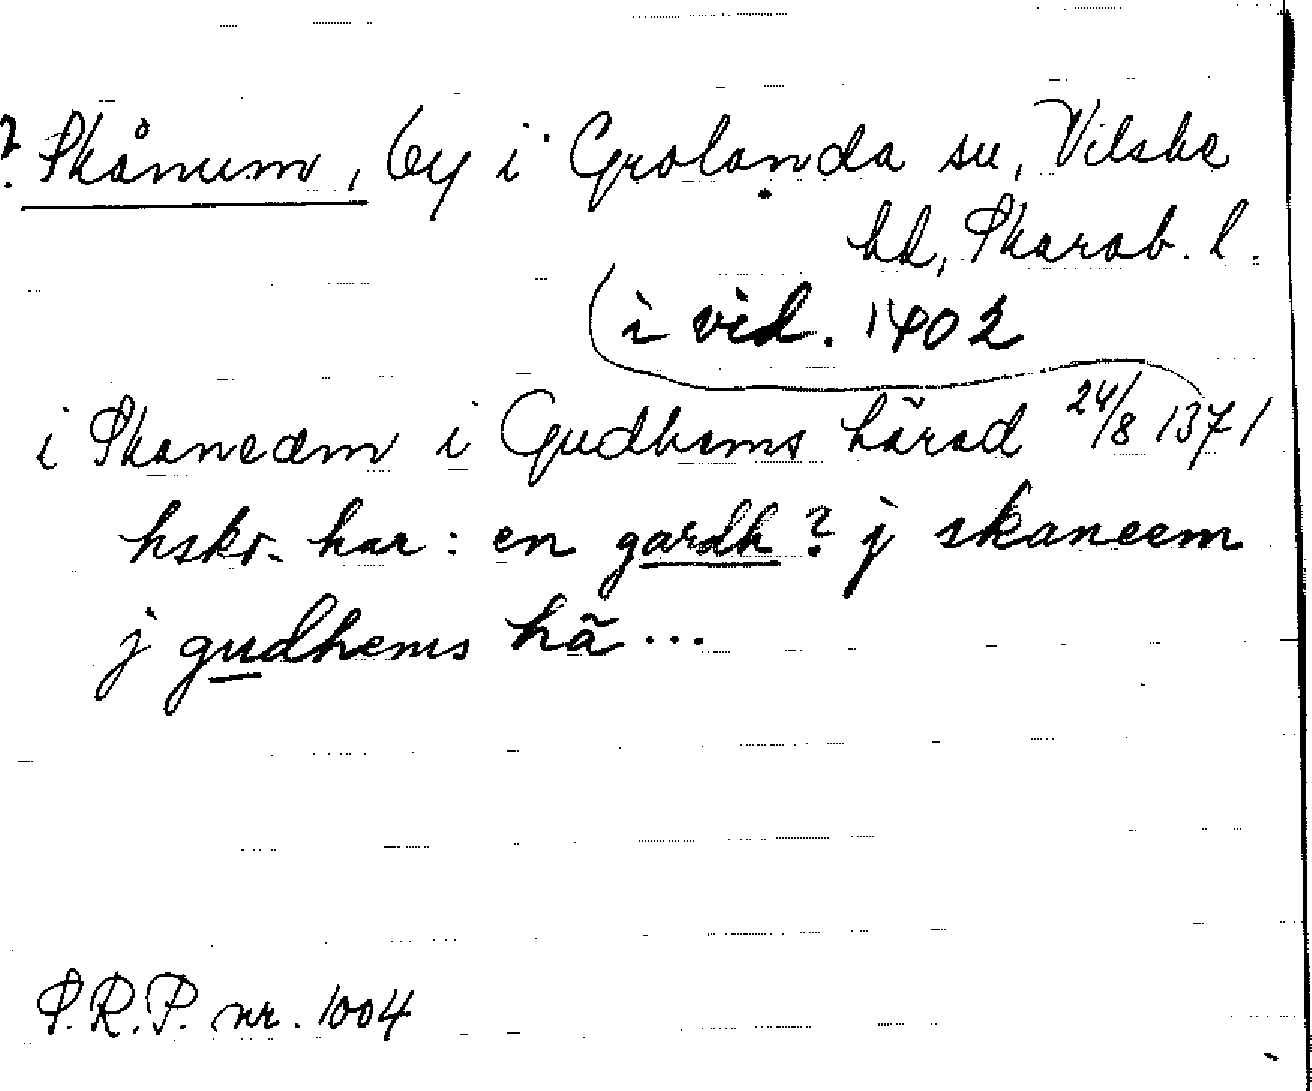 ? Skånum, by i Grolanda sn, Vilske
hd, Skarab. l.
(i vid. 1402
i Skaneæm i Gudhems härad 24/8 1371
hskr. har: en gardh? j skaneem
j gudhems hä...
S.R.P. nr. 1004